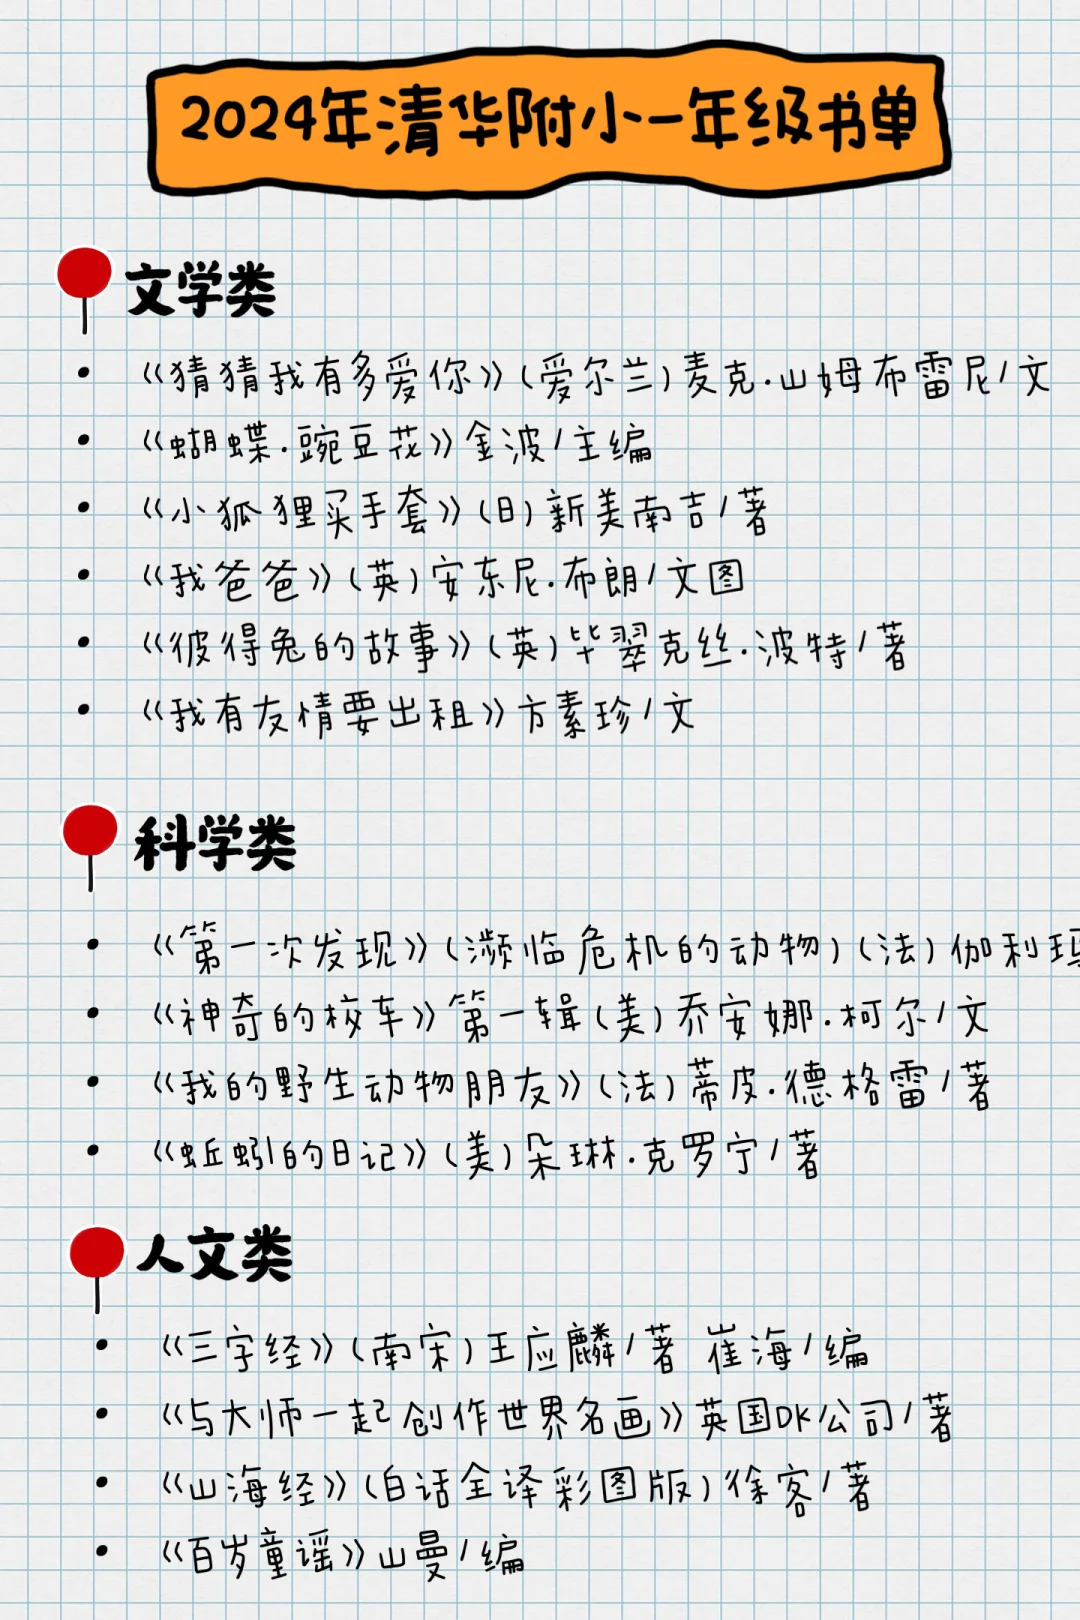 2024年清华附小一年级书单
文学类
• 《猜猜我有多爱你》(爱尔兰)麦克·山姆布雷尼/文
• 《蝴蝶·豌豆花》金波/主编
• 《小狐狸买手套》(日)新美南吉/著
• 《我爸爸》(英)安东尼·布朗/文图
• 《彼得兔的故事》(英)毕翠克丝·波特/著
• 《我有友情要出租》方素珍/文
科学类
• 《第一次发现》(濒临危机的动物)(法)伽利玛
• 《神奇的校车》第一辑(美)乔安娜·柯尔/文
• 《我的野生动物朋友》(法)蒂皮·德格雷/著
• 《蚯蚓的日记》(美)朵琳·克罗宁/著
人文类
• 《三字经》(南宋)王应麟/著 崔海/编
• 《与大师一起创作世界名画》英国DK公司/著
• 《山海经》(白话全译彩图版)徐客/著
• 《百岁童谣》山曼/编